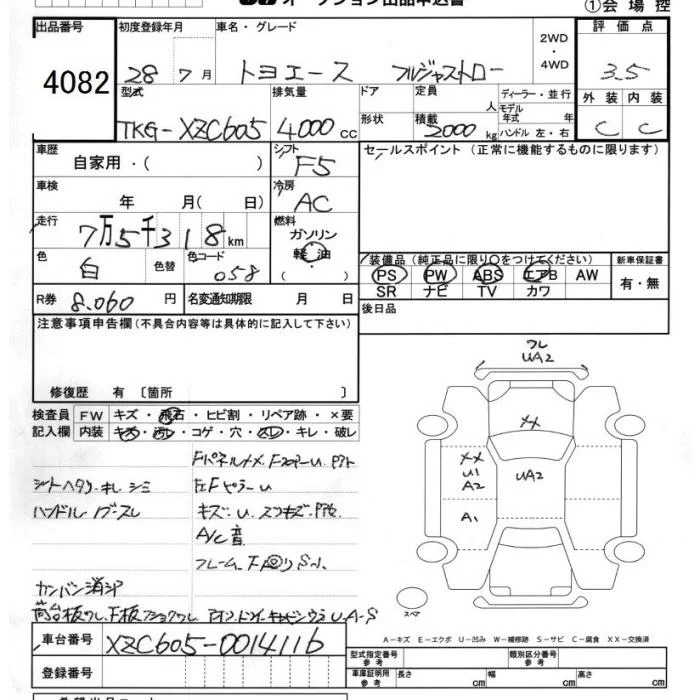 オークション出品申込書
①会場控
出品番号
4082
初度登録年月
28 7月
車名・グレード
トヨエース フルジャストロー
2WD
・
4WD
評価点
3.5
外装 内装
C C
型式
TKG-XZC605
排気量
4000cc
ドア
形状
定員
人
積載
2000kg
ディーラー・並行
モデル
年式 年
ハンドル 左・右
車歴
自家用・( )
シフト
F5
セールスポイント (正常に機能するものに限ります)
車検
年 月( 日)
冷房
AC
走行
7万5千318km
燃料
ガソリン
軽油
( )
色
白
色替
色コード
058
装備品 (純正品に限り○をつけてください)
PS PW ABS エアB AW
SR ナビ TV カワ
新車保証書
有・無
R券
8.060円
名変通知期限 月 日
後日品
注意事項申告欄(不具合内容等は具体的に記入して下さい)
修復歴 有〔箇所 〕
検査員
記入欄
FW キズ・飛石・ヒビ割・リペア跡・×要
内装 キズ・汚れ・コゲ・穴・スレ・キレ・破レ
シートヘタリ・キレ シミ
ハンドル
キズ・U
A/C 音
フレーム
カンバン消シ
フレ
UA2
XX
XX
U1
A2
UA2
A1
スペア
A-キズ E-エクボ U-凹み W-補修跡 S-サビ C-腐食 XX-交換済
車台番号
XZC605-0014116
登録番号
型式指定番号
参考
類別区分番号
参考
車庫証明用
参考
長さ cm 幅 cm 高さ cm